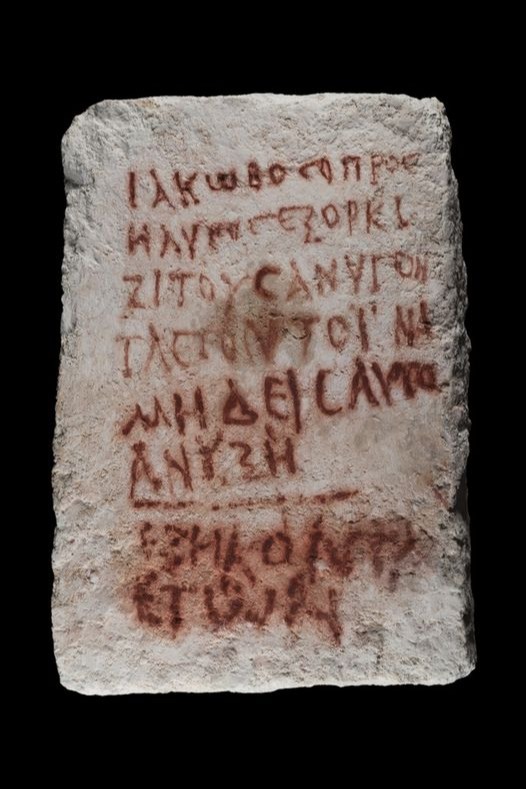 ΙΑΚΩΒΟC Ο ΠΡΟC
ΗΛΥΤΟC ΕΞΟΡΚΙ
ΖΙ ΤΟΥC ΑΝΥΓΟΝ
ΤΑC ΤΟΥΤΟ ΙΝΑ
ΜΗΔΕΙC ΑΥΤΟ
ΑΝΥΞΗ
ΕΞΗΚΟΝΤΑ
ΕΤΩΝ